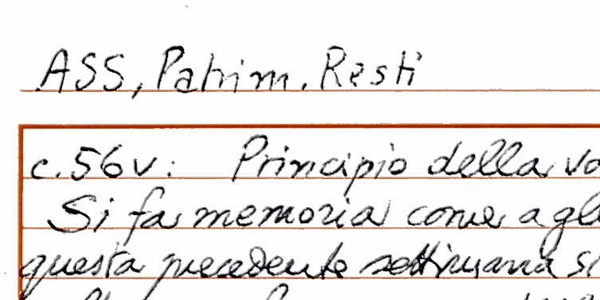 ASS, Patrim. Resti
c. 56v: Principio della va
Si fa memoria come a gl
questa precedente settimana si